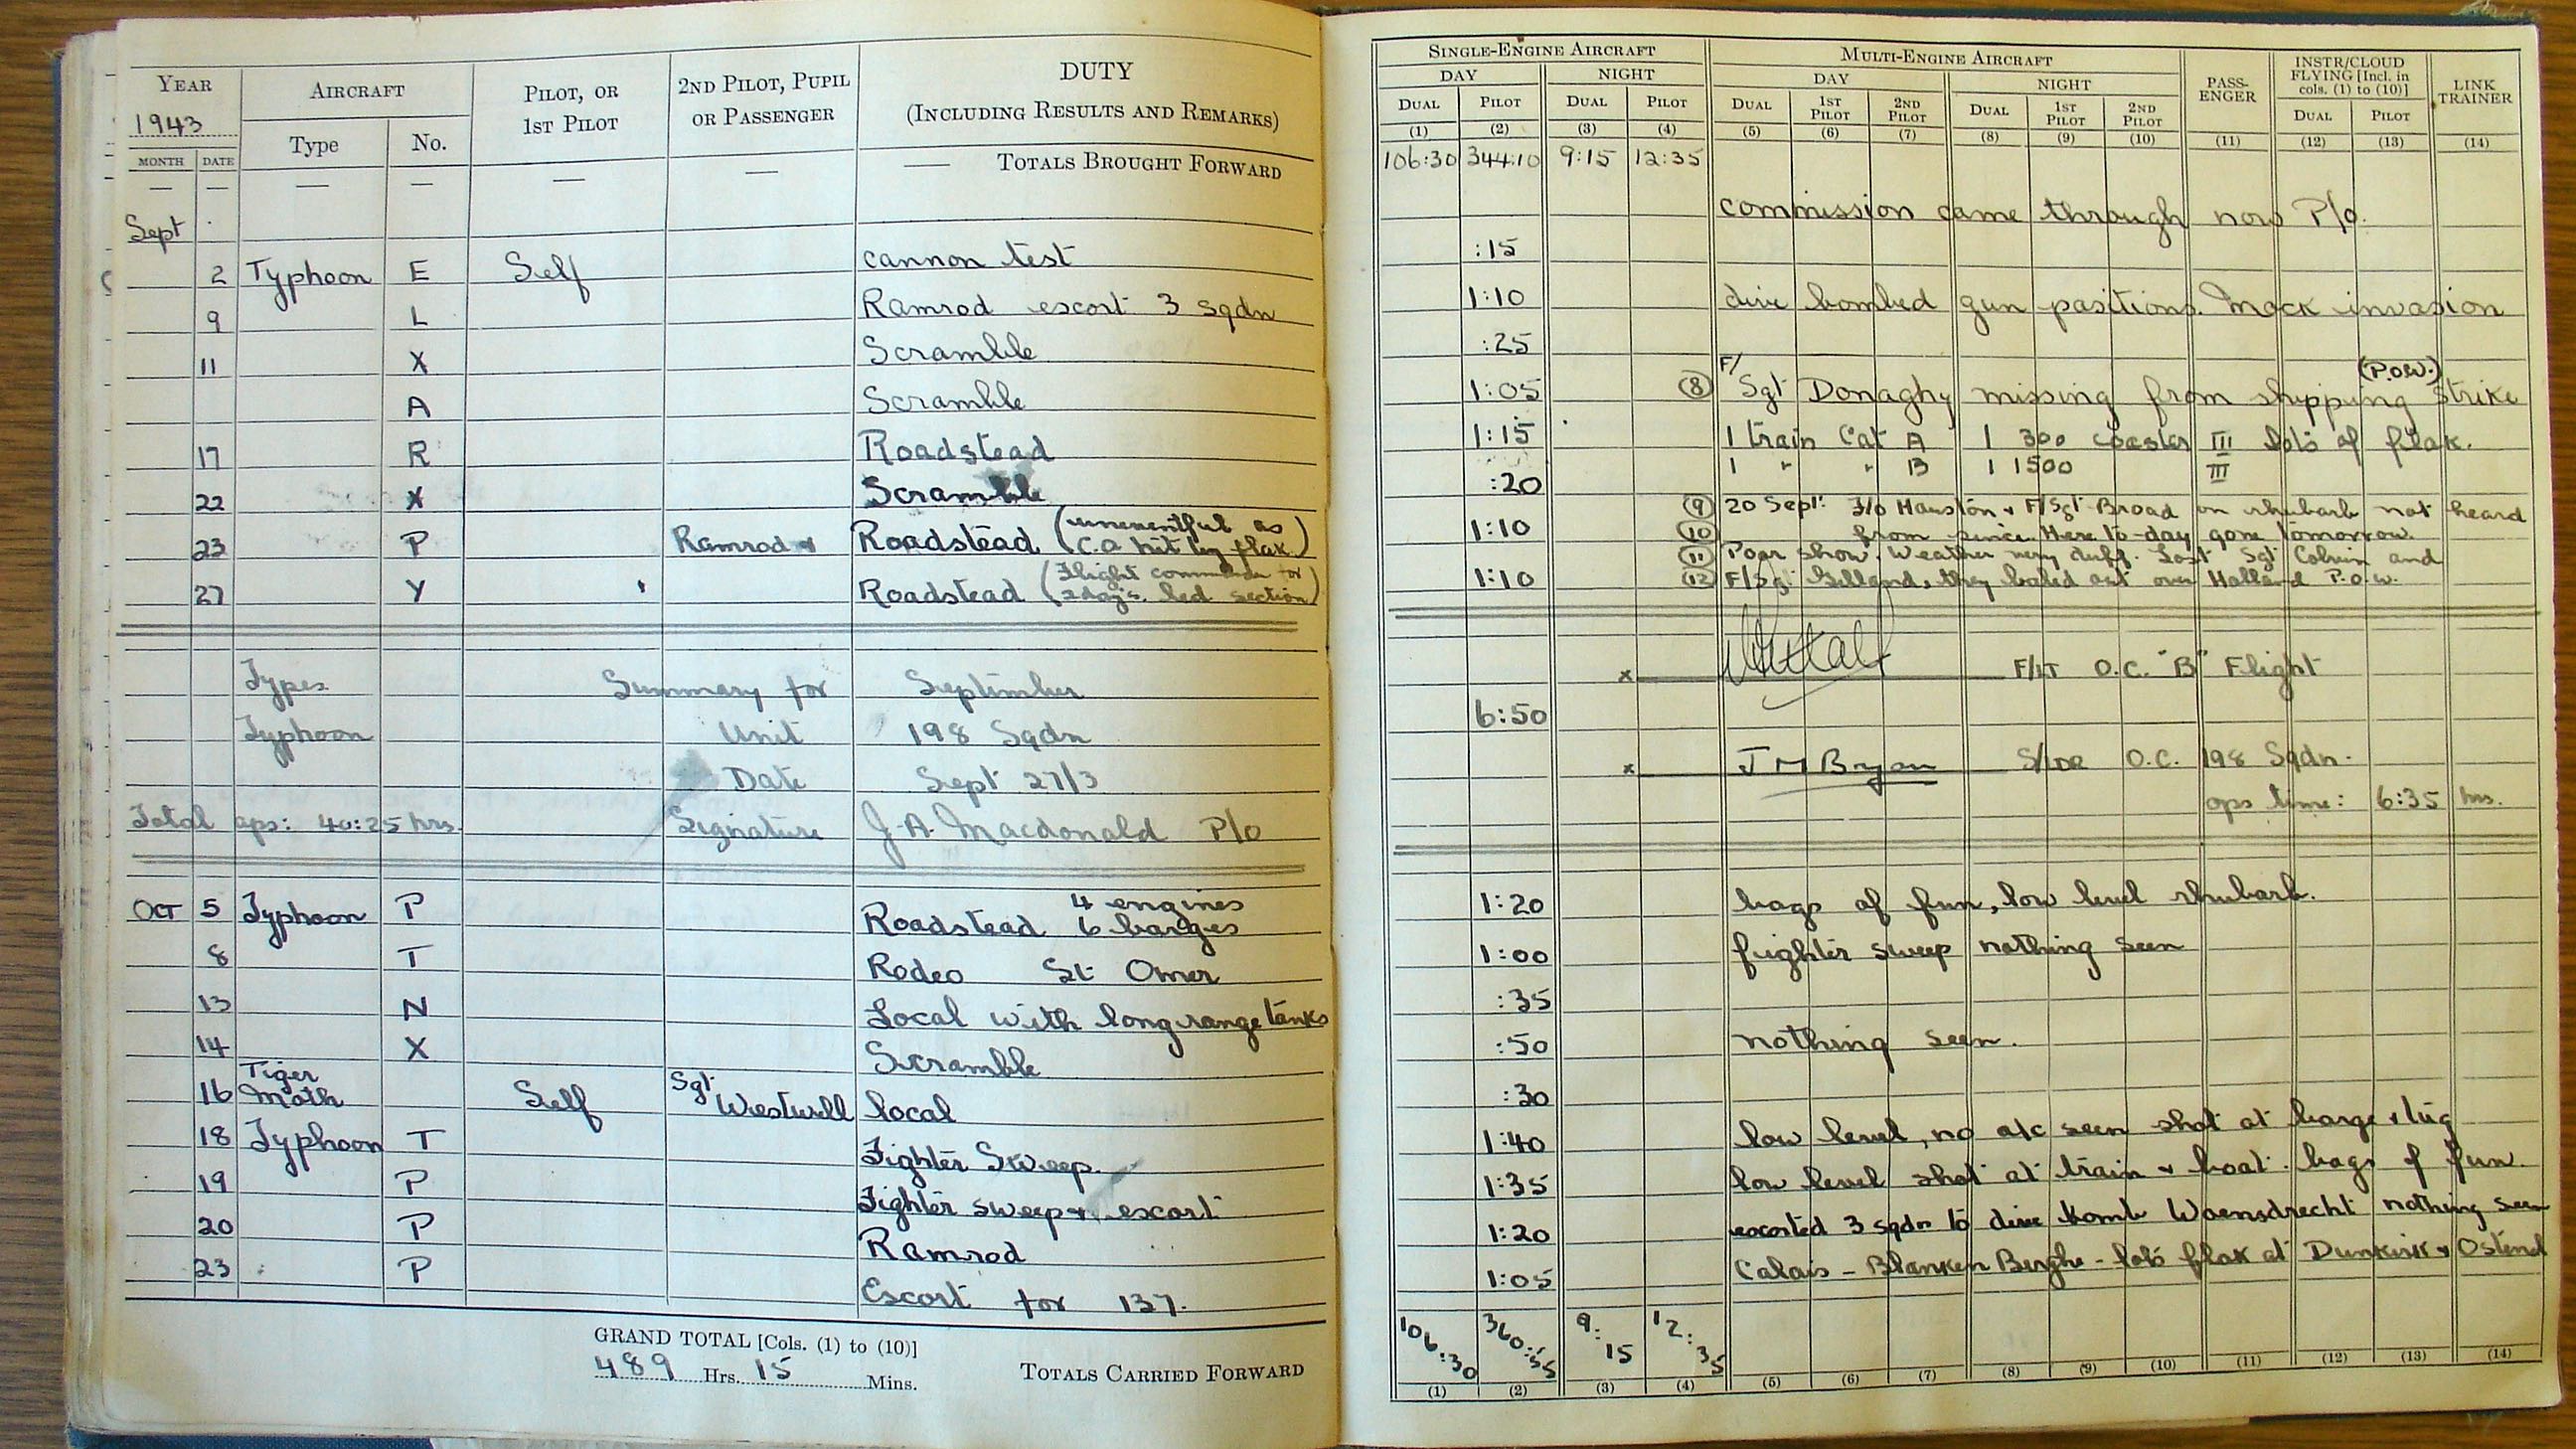 YEAR AIRCRAFT PILOT, OR 1ST PILOT 2ND PILOT, PUPIL OR PASSENGER DUTY (INCLUDING RESULTS AND REMARKS)
1943 Type No.
MONTH DATE
— — — — — — — TOTALS BROUGHT FORWARD
Sept
2 Typhoon E Self cannon test
9 L Ramrod escort 3 sqdn
11 X Scramble
A Scramble
17 R Roadstead
22 X Scramble
23 P Ramrod & Roadstead (uneventful as C.O hit by flak)
27 Y Roadstead (Flight commander for 2 days. led section)
Types Summary for September
Typhoon Unit 198 Sqdn
Date Sept 27/3
Total ops: 40:25 hrs. Signature J.A. Macdonald P/O
OCT 5 Typhoon P Roadstead 4 engines 6 barges
8 T Rodeo St Omer
13 N Local with long range tanks
14 X Scramble
16 Tiger Moth Self Sgt Westwell local
18 Typhoon T Fighter Sweep.
19 P Fighter sweep & escort
20 P Ramrod
23 P Escort for 137.
GRAND TOTAL [Cols. (1) to (10)]
489 Hrs. 15 Mins.
TOTALS CARRIED FORWARD
SINGLE-ENGINE AIRCRAFT MULTI-ENGINE AIRCRAFT PASS-ENGER INSTR/CLOUD FLYING [Incl. in cols. (1) to (10)] LINK TRAINER
DAY NIGHT DAY NIGHT
DUAL PILOT DUAL PILOT DUAL 1ST PILOT 2ND PILOT DUAL 1ST PILOT 2ND PILOT DUAL PILOT
(1) (2) (3) (4) (5) (6) (7) (8) (9) (10) (11) (12) (13) (14)
106:30 344:10 9:15 12:35
commission came through now P/O.
:15
1:10 dive bombed gun positions. Mock invasion
:25
1:05 (8) F/Sgt Donaghy missing from shipping strike (P.O.W.)
1:15 1 train Cat A 1 300 coaster III lots of flak.
:20 1 " " B 1 1500 III
(9) 20 Sept: F/O Houston & F/Sgt Broad on rhubarb not heard
1:10 (10) from since. Here to-day gone tomorrow.
(11) Poor show. Weather very duff. Lost Sgt Colvin and
1:10 (12) F/Sgt Gilland, they baled out over Holland P.O.W.
x F/LT O.C. "B" Flight
6:50
x J M Bryan S/LDR O.C. 198 Sqdn.
ops time: 6:35 hrs.
1:20 bags of fun, low level rhubarb.
1:00 fighter sweep nothing seen
:35
:50 nothing seen.
:30
1:40 low level, no a/c seen shot at barge & tug
1:35 low level shot at train & boat. bags of fun.
1:20 escorted 3 sqdn to dive bomb Woensdrecht nothing seen
1:05 Calais - Blanken Berghe - lots flak at Dunkirk & Ostend
106:30 360:55 9:15 12:35
(1) (2) (3) (4) (5) (6) (7) (8) (9) (10) (11) (12) (13) (14)